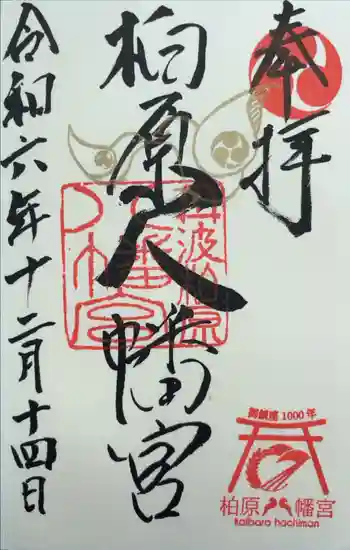 奉拝
柏原八幡宮
丹波柏原
八幡宮
令和六年十二月十四日
御鎮座1000年
柏原八幡宮
kaibara hachiman